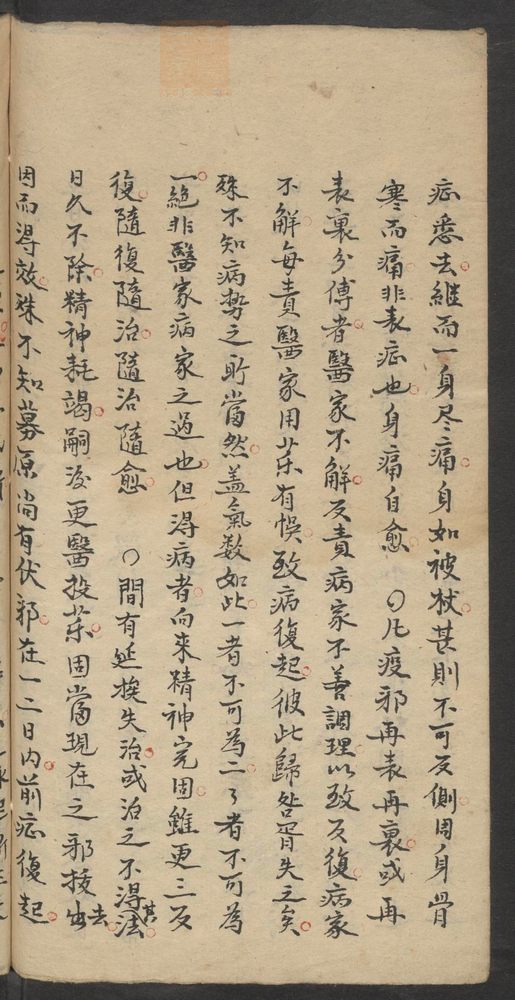 症悉去繼而一身尽痛身如被杖甚則不可反側周身骨
寒而痛非表症也身痛自愈　〇凡疫邪再表再裏或再
表裏分傳者醫家不解反責病家不善調理以致反復病家
不解每責醫家用藥有悞致病復起彼此歸咎胥失之矣
殊不知病勢之所當然盖氣数如此一者不可為二々者不可為
一絕非醫家病家之過也但得病者向來精神完固雖更三反
復隨復隨治隨治隨愈　〇間有延挨失治或治之不得其法
日久不除精神耗竭嗣後更醫投藥固當現在之邪拔去
因而得效殊不知募原尚有伏邪在一二日内前症復起